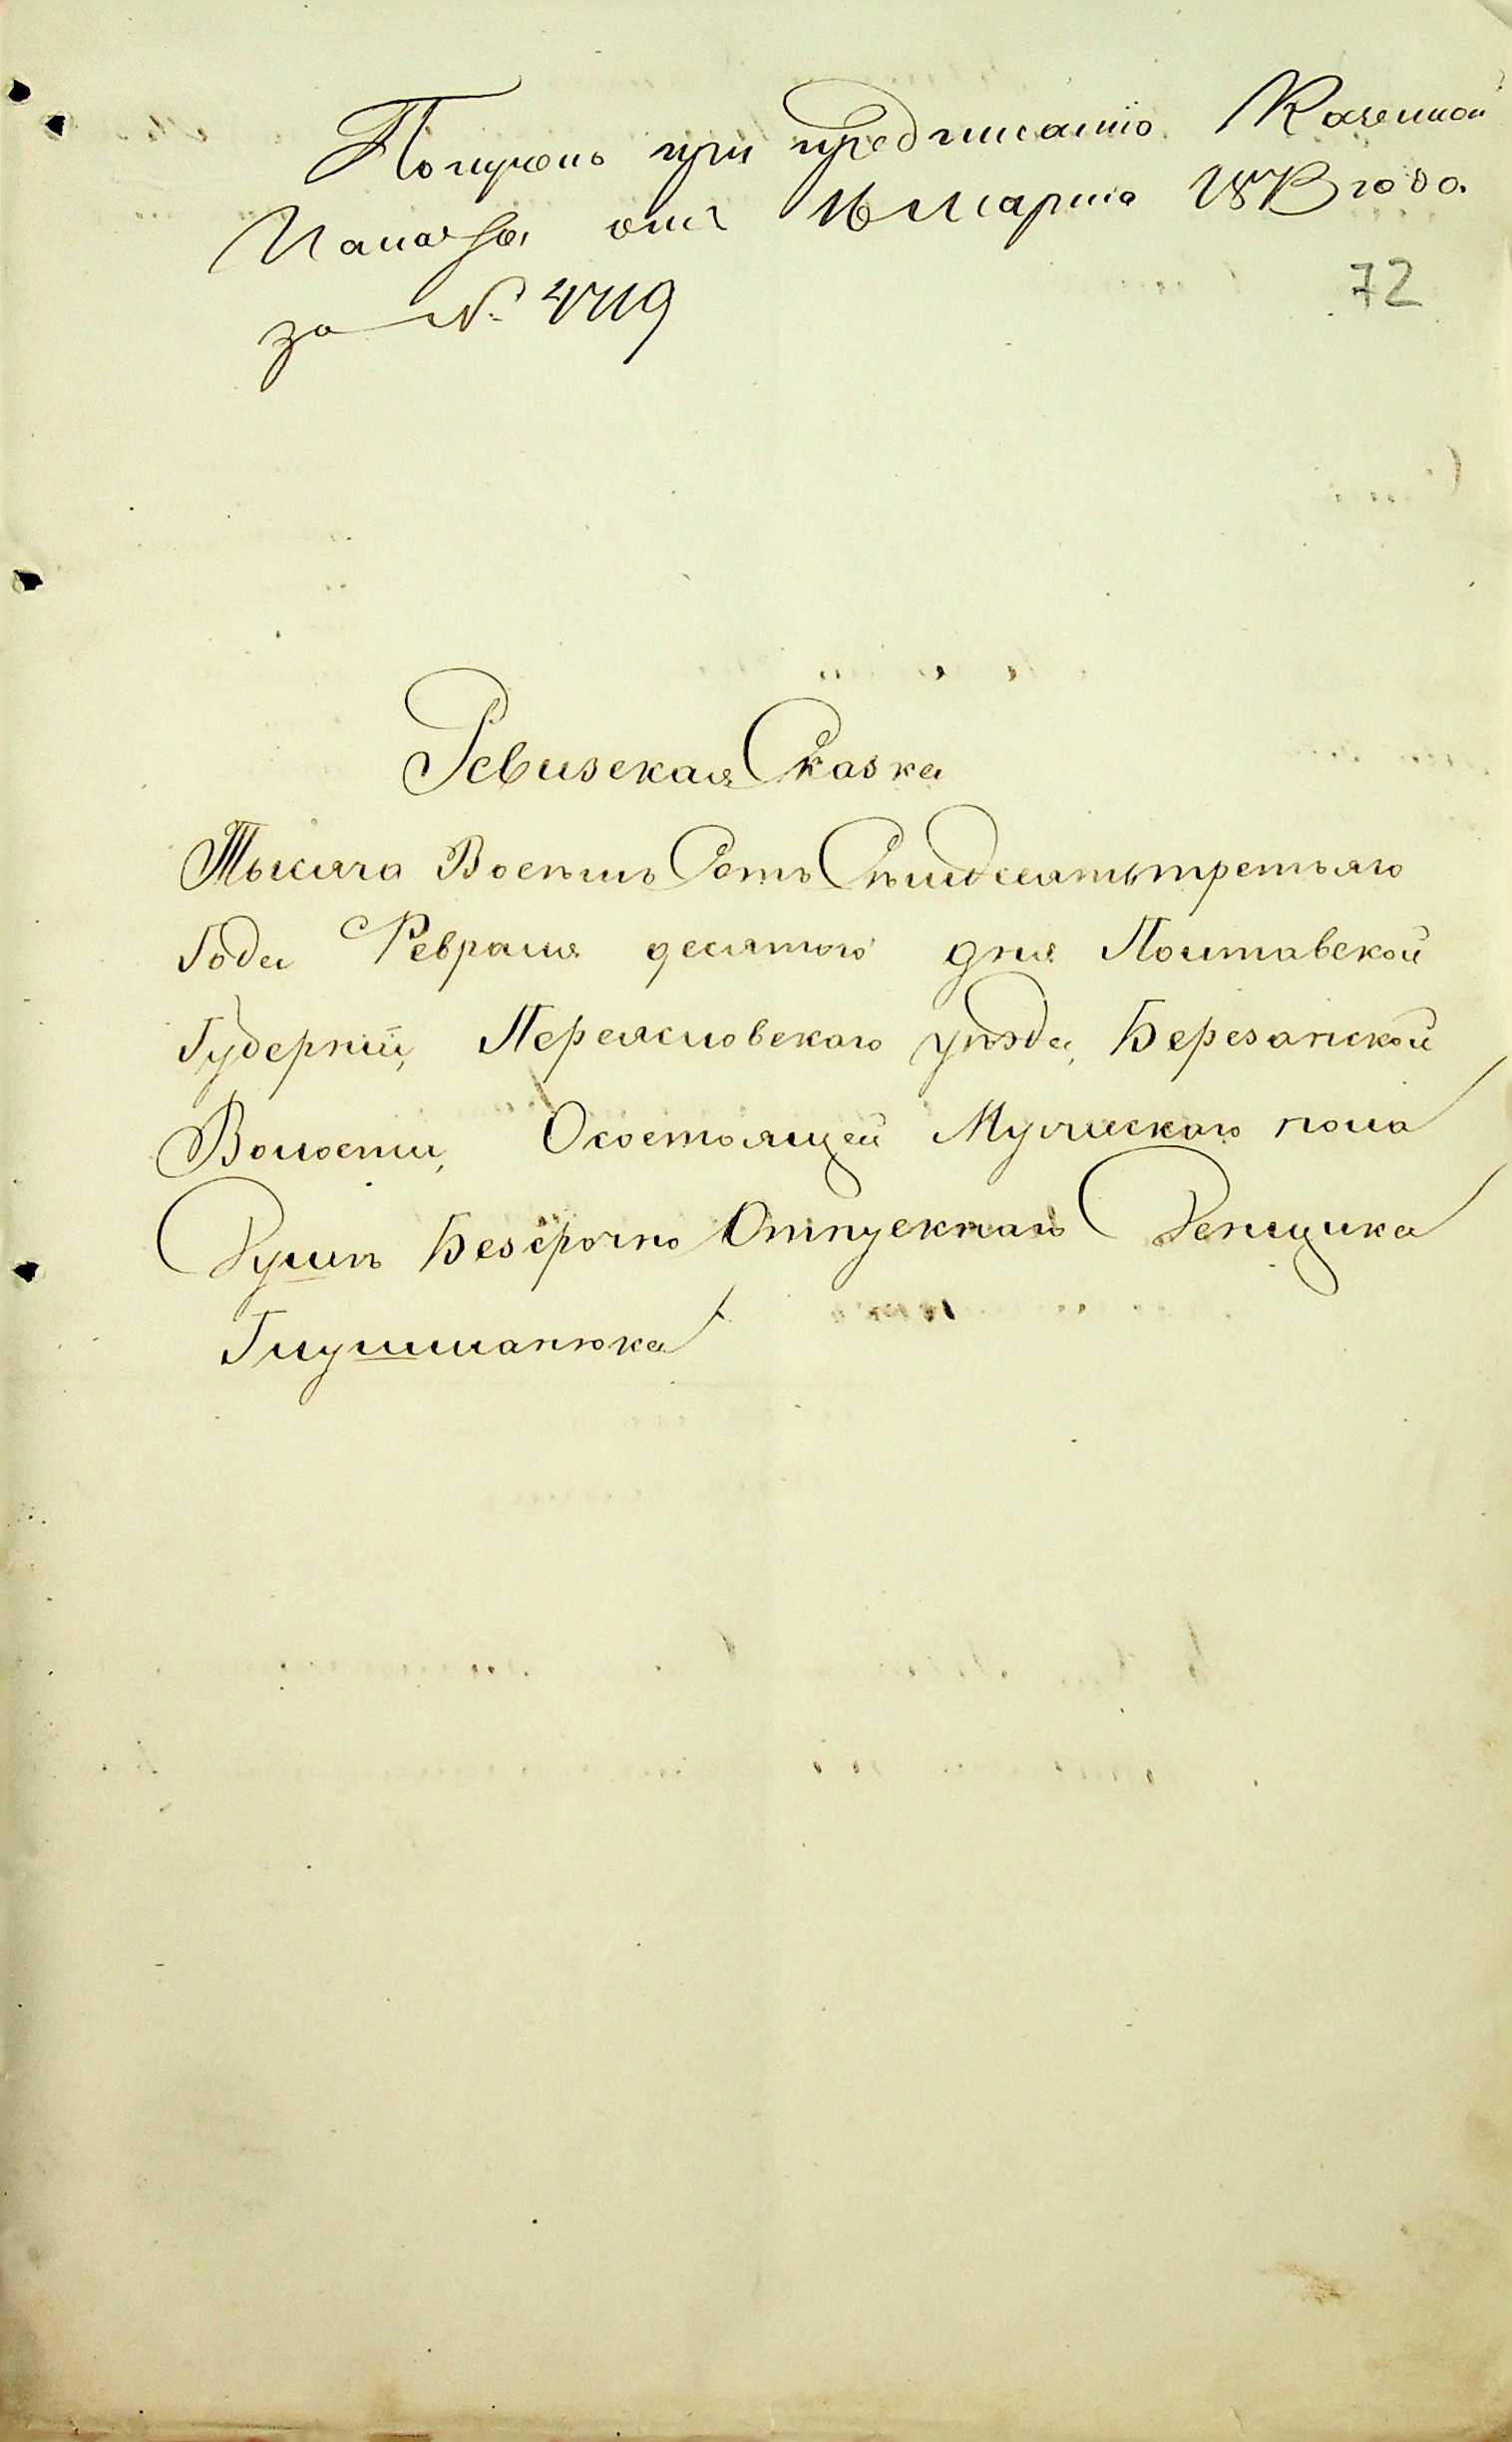 Получено при предписанію Казенной
Палаты отъ 16 Марта 1873 года
за №. 4719
72
Ревизская Сказка
Тысяча Восемь Сотъ Семдесятьтретьяго
Года Февраля десятого дня Полтавской
Губерніи, Переясловскаго уѣзда, Березанской
Волости, Осостоящей Мужскаго пола
Душѣ Безсрочно Отпускнаго Денщика
Глушманюка